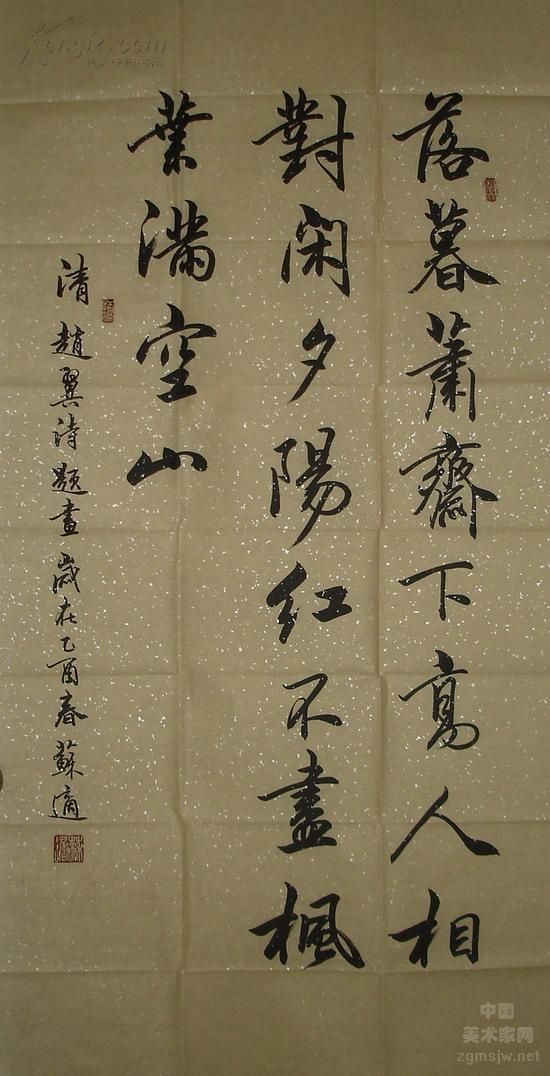 落暮蕭齋下高人相
對閑夕陽紅不盡楓
葉滿空山
清趙翼詩題畫歲在乙酉春蘇適
中国
美术家网
zgmsjw.net